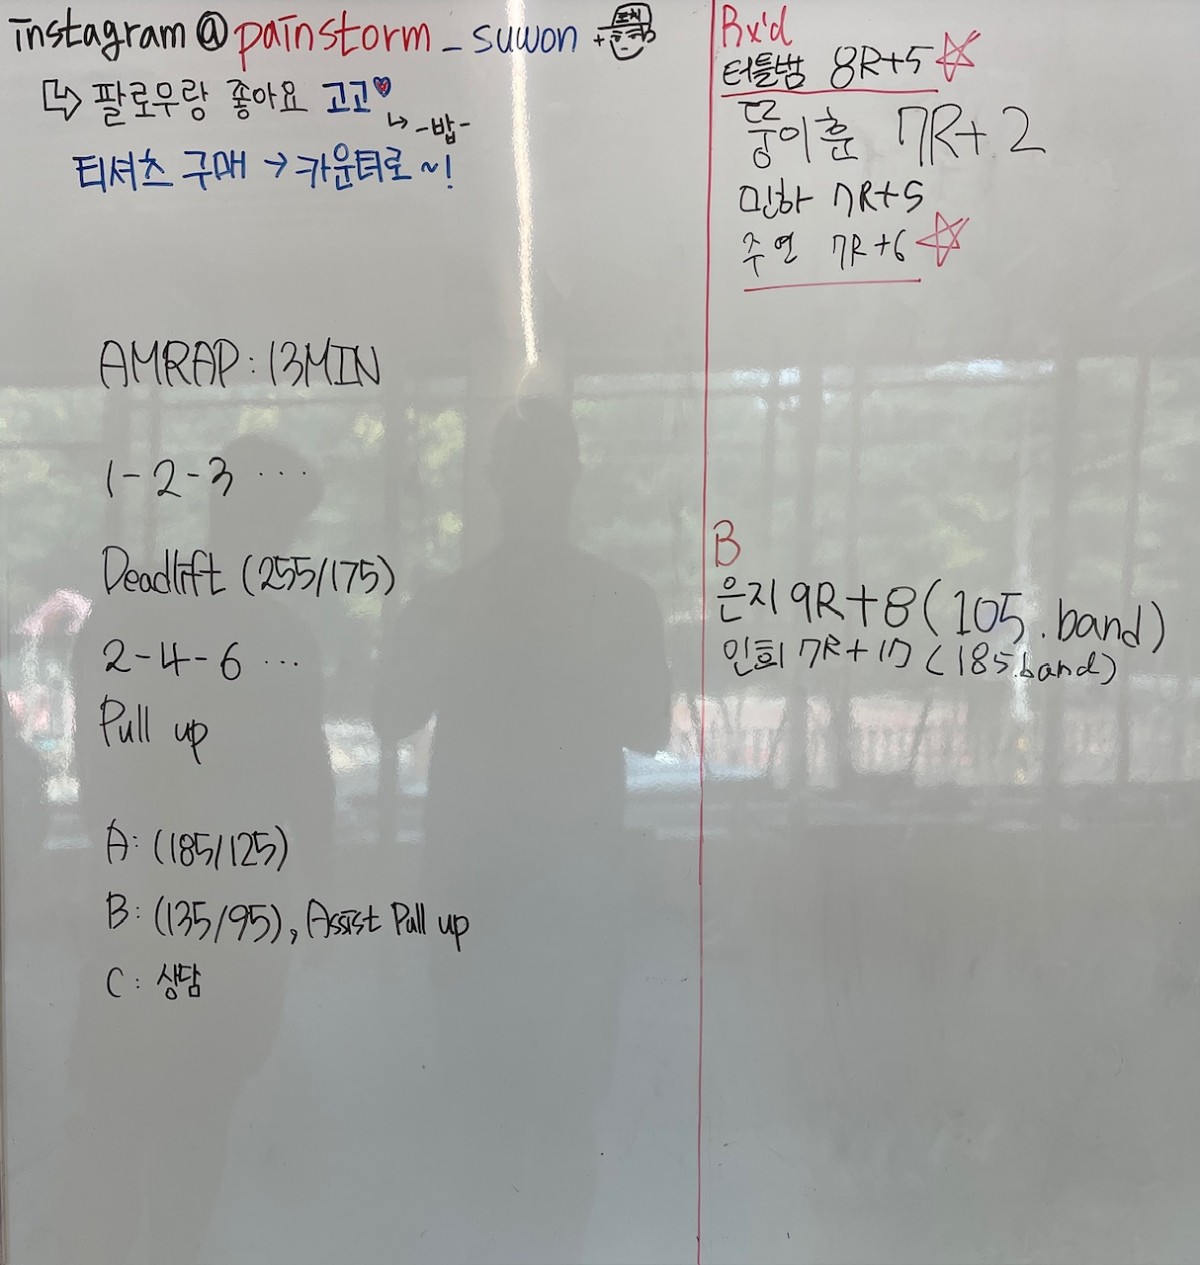 instagram@painstorm_suwon +
팔로우랑 좋아요 고고
-밥-
티셔츠 구매 → 카운터로~!
AMRAP: 13MIN
1-2-3 ...
Deadlift (255/175)
2-4-6 ...
Pull up
A: (185/125)
B: (135/95), Assist Pull up
C: 상담
Rx'd
터틀밤 8R+5
뭉이훈 7R+2
민하 7R+5
주연 7R+6
B
은지 9R+8 (105.band)
인희 7R+17 (185.band)